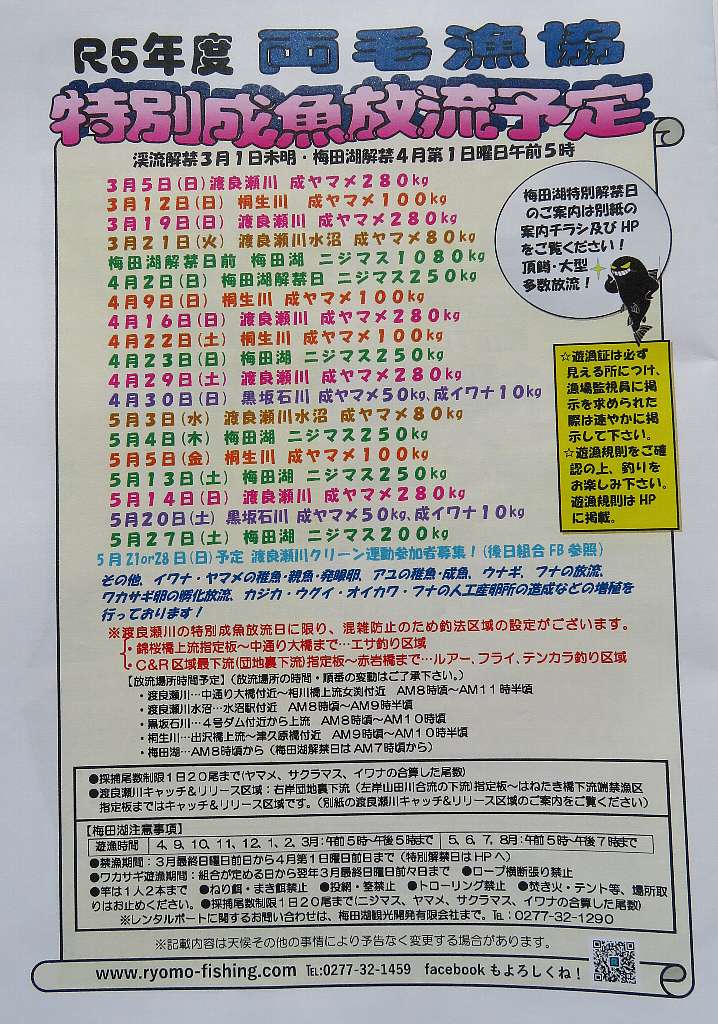 R5年度 両毛漁協
特別成魚放流予定
渓流解禁3月1日未明・梅田湖解禁4月第1日曜日午前5時
3月5日(日)渡良瀬川 成ヤマメ280kg
3月12日(日) 桐生川 成ヤマメ100kg
3月19日(日) 渡良瀬川 成ヤマメ280kg
3月21日(火) 渡良瀬川水沼 成ヤマメ80kg
梅田湖解禁日前 梅田湖 ニジマス1080kg
4月2日(日) 梅田湖解禁日 ニジマス250kg
4月9日(日) 桐生川 成ヤマメ100kg
4月16日(日) 渡良瀬川 成ヤマメ280kg
4月22日(土) 桐生川 成ヤマメ100kg
4月23日(日) 梅田湖 ニジマス250kg
4月29日(土) 渡良瀬川 成ヤマメ280kg
4月30日(日) 黒坂石川 成ヤマメ50kg、成イワナ10kg
5月3日(水) 渡良瀬川水沼 成ヤマメ80kg
5月4日(木) 梅田湖 ニジマス250kg
5月5日(金) 桐生川 成ヤマメ100kg
5月13日(土) 梅田湖 ニジマス250kg
5月14日(日) 渡良瀬川 成ヤマメ280kg
5月20日(土) 黒坂石川 成ヤマメ50kg、成イワナ10kg
5月27日(土) 梅田湖 ニジマス200kg
5月21or28日(日)予定 渡良瀬川クリーン運動参加者募集!(後日組合FB参照)
梅田湖特別解禁日
のご案内は別紙の
案内チラシ及びHP
をご覧ください!
頂鱒・大型
多数放流!
☆遊漁証は必ず
見える所につけ、
漁場監視員に掲
示を求められた
際は速やかに掲
示して下さい。
☆遊漁規則をご確
認の上、釣りを
お楽しみ下さい。
遊漁規則はHP
に掲載。
その他、イワナ・ヤマメの稚魚・親魚・発眼卵、アユの稚魚・成魚、ウナギ、フナの放流、
ワカサギ卵の孵化放流、カジカ・ウグイ・オイカワ・フナの人工産卵所の造成などの増殖を
行っております!
※渡良瀬川の特別成魚放流日に限り、混雑防止のため釣法区域の設定がございます。
・錦桜橋上流指定板~中通り大橋まで…エサ釣り区域
・C&R区域最下流(団地裏下流)指定板~赤岩橋まで…ルアー、フライ、テンカラ釣り区域
【放流場所時間予定】(放流場所の時間・順番の変動はご了承下さい。)
・渡良瀬川…中通り大橋付近~相川橋上流女渕付近 AM8時頃~AM11時半頃
・渡良瀬川水沼…水沼駅付近 AM8時頃~AM9時半頃
・黒坂石川…4号ダム付近から上流 AM8時頃~AM10時頃
・桐生川…出沢橋上流~津久原橋付近 AM9時頃~AM10時半頃
・梅田湖…AM8時頃から(梅田湖解禁日はAM7時頃から)
●採捕尾数制限1日20尾まで(ヤマメ、サクラマス、イワナの合算した尾数)
●渡良瀬川キャッチ&リリース区域:右岸団地裏下流(左岸山田川合流の下流)指定板~はねたき橋下流端禁漁区
指定板まではキャッチ&リリース区域です。(別紙の渡良瀬川キャッチ&リリース区域のご案内をご覧ください)
【梅田湖注意事項】
遊漁時間 4、9、10、11、12、1、2、3月:午前5時~午後5時まで 5、6、7、8月:午前5時~午後7時まで
●禁漁期間:3月最終日曜日前日から4月第1日曜日前日まで(特別解禁日はHPへ)
●ワカサギ遊漁期間:組合が定める日から翌年3月最終日曜日前々日まで ●ロープ横断張り禁止
●竿は1人2本まで ●ねり餌・まき餌禁止 ●投網・筌禁止 ●トローリング禁止 ●焚き火・テント等、場所取
りはお止めください。●採捕尾数制限1日20尾まで(ニジマス、ヤマメ、サクラマス、イワナの合算した尾数)
※レンタルボートに関するお問い合わせは、梅田湖観光開発有限会社まで。℡:0277-32-1290
※記載内容は天候その他の事情により予告なく変更する場合があります。
www.ryomo-fishing.com ℡:0277-32-1459 facebookもよろしくね!